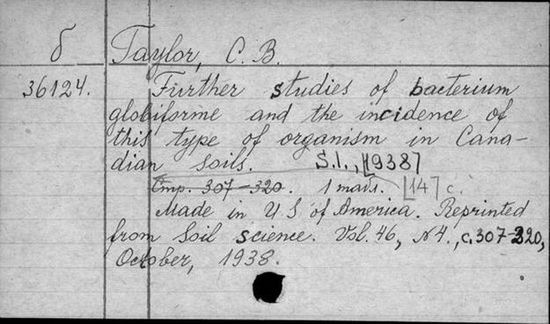 б Taylor, C. B.
36124. Further studies of bacterium
globiforme and the incidence of
this type of organism in Cana-
dian soils. S.l., [1938]
Стр. 307-320. 1 табл. [14] с.
Made in U S of America. Reprinted
from Soil science. Vol. 46, N4., c.307-320,
October, 1938.